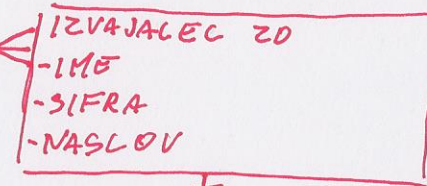 IZVAJALEC ZD
-IME
-SIFRA
-NASLOV